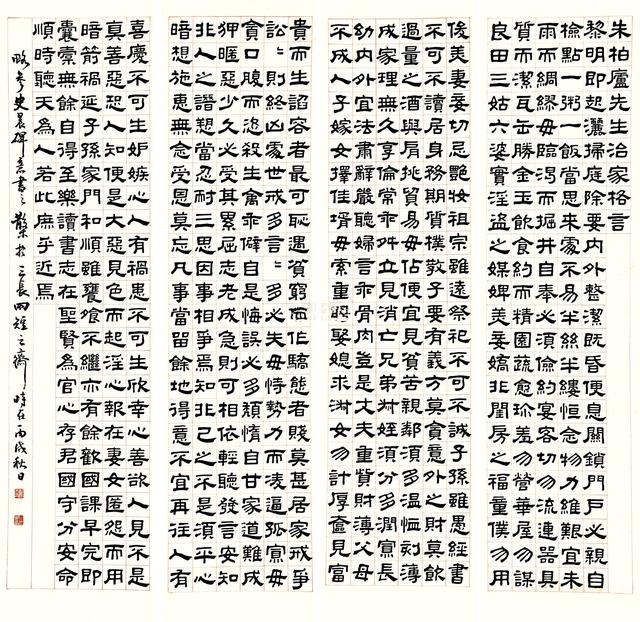 朱柏廬先生治家格言
黎明即起灑掃庭除要內外整潔既昏便息關鎖門戶必親自
檢點一粥一飯當思來處不易半絲半縷恒念物力維艱宜未
雨而綢繆毋臨渴而掘井自奉必須儉約宴客切勿流連器具
質而潔瓦缶勝金玉飲食約而精園蔬愈珍羞勿營華屋勿謀
良田三姑六婆實淫盜之媒婢美妾嬌非閨房之福童僕勿用
俊美妻妾切忌艷妝祖宗雖遠祭祀不可不誠子孫雖愚經書
不可不讀居身務期質樸教子要有義方莫貪意外之財莫飲
過量之酒與肩挑貿易毋佔便宜見貧苦親鄰須多溫恤刻薄
成家理無久享倫常乖舛立見消亡兄弟叔姪須分多潤寡長
幼內外宜法肅辭嚴聽婦言乖骨肉豈是丈夫重貲財薄父母
不成人子嫁女擇佳壻毋索重聘娶媳求淑女勿計厚奩見富
貴而生諂容者最可恥遇貧窮而作驕態者賤莫甚居家戒爭
訟訟則終凶處世戒多言言多必失毋恃勢力而凌逼孤寡毋
貪口腹而恣殺生禽乖僻自是悔誤必多頹惰自甘家道難成
狎暱惡少久必受其累屈志老成急則可相依輕聽發言安知
非人之譖愬當忍耐三思因事相爭焉知非己之不是須平心
暗想施惠無念受恩莫忘凡事當留餘地得意不宜再往人有
喜慶不可生妒嫉心人有禍患不可生欣幸心善欲人見不是
真善惡恐人知便是大惡見色而起淫心報在妻女匿怨而用
暗箭禍延子孫家門和順雖饔飧不繼亦有餘歡國課早完即
囊橐無餘自得至樂讀書志在聖賢為官心存君國守分安命
順時聽天為人若此庶乎近焉
略參史晨碑意書之於三長兩短之齋時在丙戌秋日